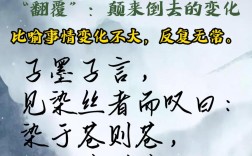 “翻覆”：颠来倒去的变化
比喻事情变化不大，反复无常。
子墨子言，
见染丝者而叹曰：
染于苍则苍，